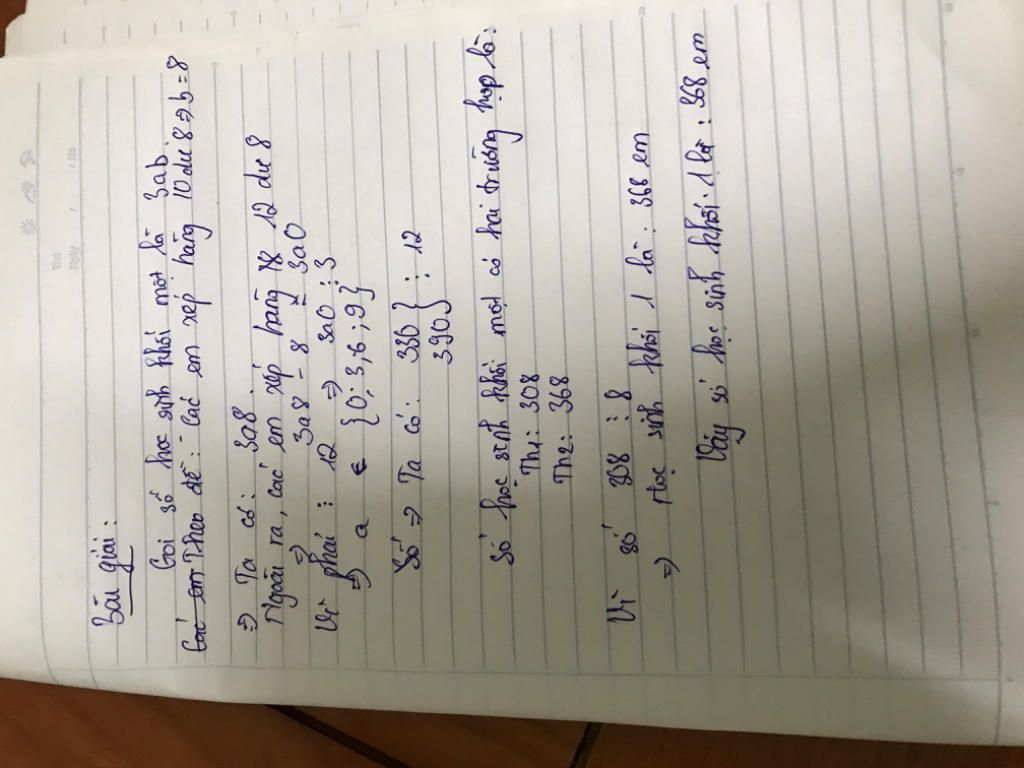 Thứ
Ngày / / No
Bài giải:
Gọi số học sinh khối một là 3ab
Các em Theo đề: Các em xếp hàng 10 dư 8 => b = 8
=> Ta có: 3a8.
Ngoài ra, các em xếp hàng 12 dư 8
=> 3a8 - 8 = 3a0
Vì phải ⋮ 12 => 3a0 ⋮ 3
=> a ∈ {0; 3; 6; 9}
Số => Ta có: 330 } ⋮ 12
390
Số học sinh khối một có hai trường hợp là:
Th1: 308
Th2: 368
Vì số 308 ⋮ 8
=> học sinh khối 1 là: 368 em
Vậy số học sinh khối 1 là: 368 em